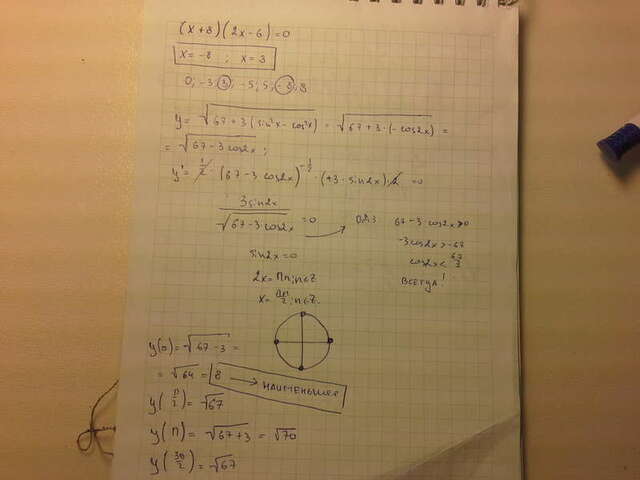 (x+8)(2x-6)=0
x=-8 ; x=3
0; -3; 3; -5; 5; -8; 8
y = √(67+3(sin²x-cos²x)) = √(67+3·(-cos2x)) =
= √(67-3cos2x);
y' = 1/2·(67-3cos2x)^(-1/2)·(+3·sin2x)·2 = 0
3sin2x/√(67-3cos2x) = 0 → ОДЗ 67-3·cos2x>0
-3cos2x>-67
sin2x=0 cos2x<67/3
2x=πn; n∈Z ВСЕГДА!
x=πn/2; n∈Z.
y(0)=√(67-3) =
= √64 = 8 → НАИМЕНЬШЕЕ
y(π/2)=√67
y(π)=√(67+3)=√70
y(3π/2)=√67